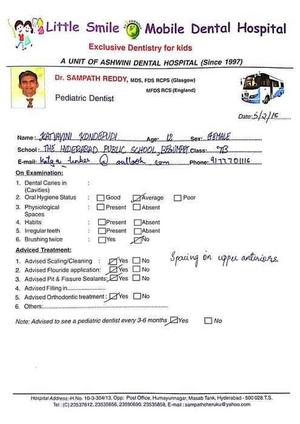 Little Smile Mobile Dental Hospital
Exclusive Dentistry for kids
A UNIT OF ASHWINI DENTAL HOSPITAL (Since 1997)
Dr. SAMPATH REDDY, MDS, FDS RCPS (Glasgow)
MFDS RCS (England)
Pediatric Dentist
Date: 5/2/15
Name: KATYAYINI KONDEPUDI Age: 12 Sex: FEMALE
School: THE HYDERABAD PUBLIC SCHOOL, BEGUMPET Class: 7B
E-mail: @ outlook.com Phone: 9177701116
On Examination:
1. Dental Caries in (Cavities)
2. Oral Hygiene Status : Good Average Poor
3. Physiological Spaces : Present Absent
4. Habits : Present Absent
5. Irregular teeth : Present Absent
6. Brushing twice : Yes No
Adviced Treatment:
1. Advised Scaling/Cleaning : Yes No
2. Advised Flouride application: Yes No
3. Advised Pit & Fissure Sealants: Yes No
4. Advised Filling in
5. Advised Orthodontic treatment : Yes No
6.
Spacing on upper anteriors
Note: Advised to see a pediatric dentist every 3-6 months Yes No
Hospital Address: H.No. 10-3-304/13, Opp: Post Office, Humayunnagar, Masab Tank, Hyderabad - 500 028 T.S.
Tel: (C) 23537612, 23535656, 23590690, 23535855, E-mail : sampathcheruku@yahoo.com